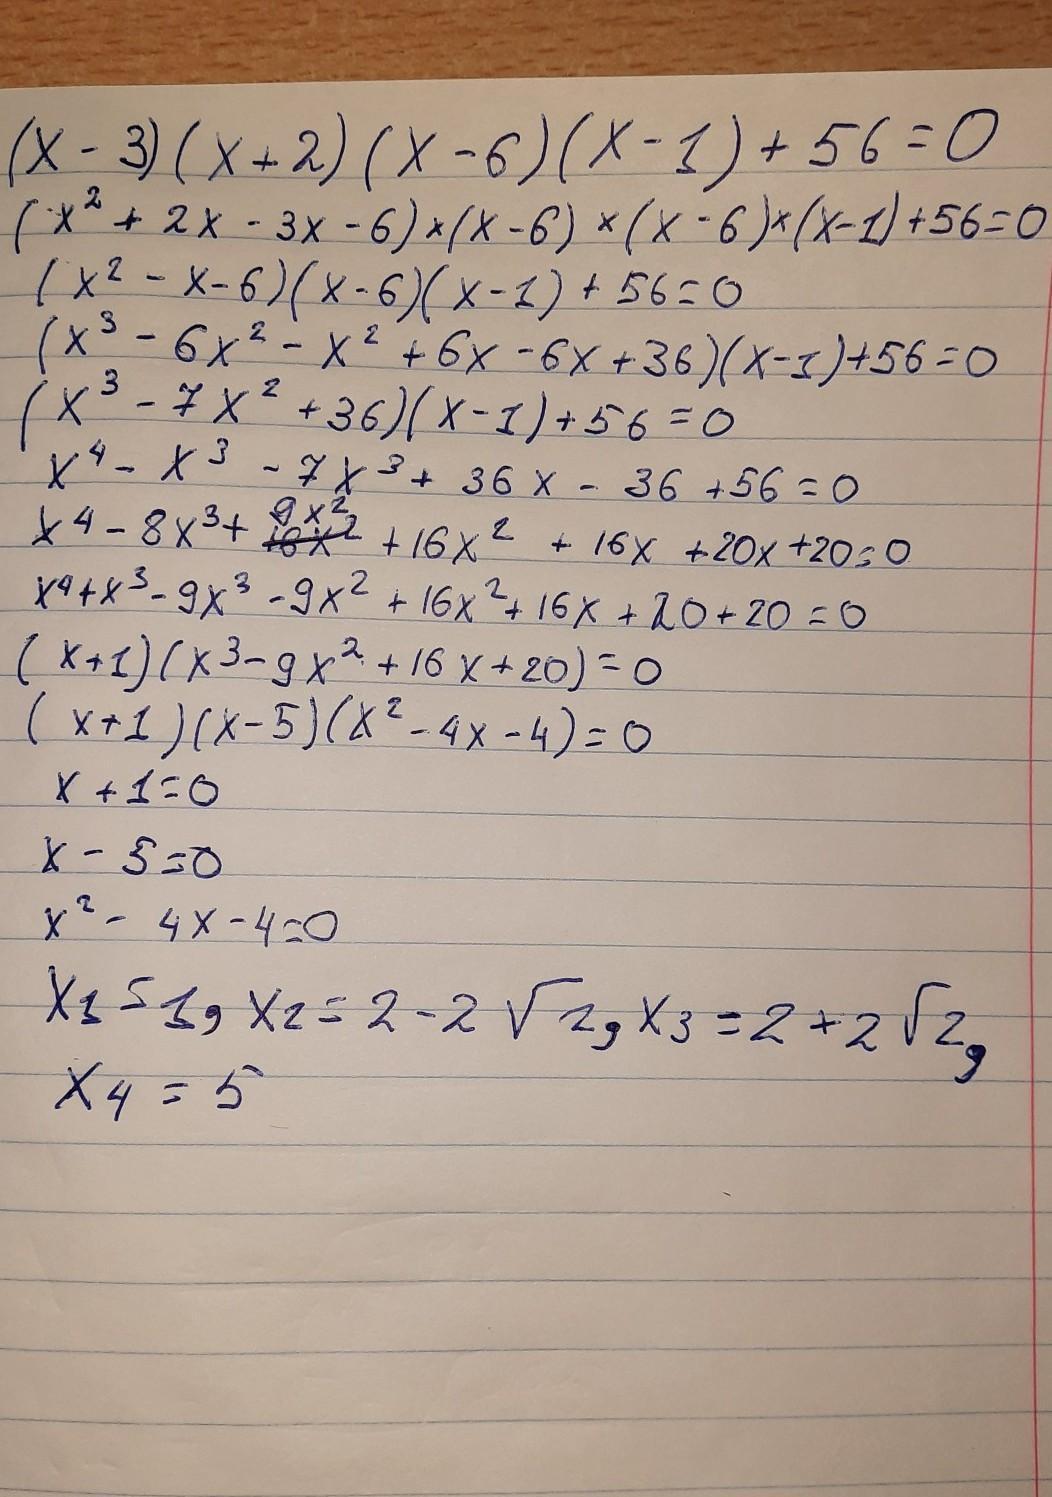 (x-3)(x+2)(x-6)(x-1)+56=0
(x² + 2x - 3x - 6)×(x-6)×(x-6)×(x-1)+56=0
(x² - x-6)(x-6)(x-1) + 56=0
(x³ - 6x² - x² + 6x - 6x + 36)(x-1)+56=0
(x³ - 7x² + 36)(x-1)+56=0
x⁴ - x³ - 7x³ + 36x - 36 + 56=0
x⁴ - 8x³ + 9x² + 16x² + 16x + 20x + 20=0
x⁴+x³-9x³-9x²+16x²+16x+20+20=0
(x+1)(x³-9x²+16x+20)=0
(x+1)(x-5)(x²-4x-4)=0
x+1=0
x-5=0
x² - 4x-4=0
x₁=1, x₂=2-2√2, x₃=2+2√2,
x₄=5